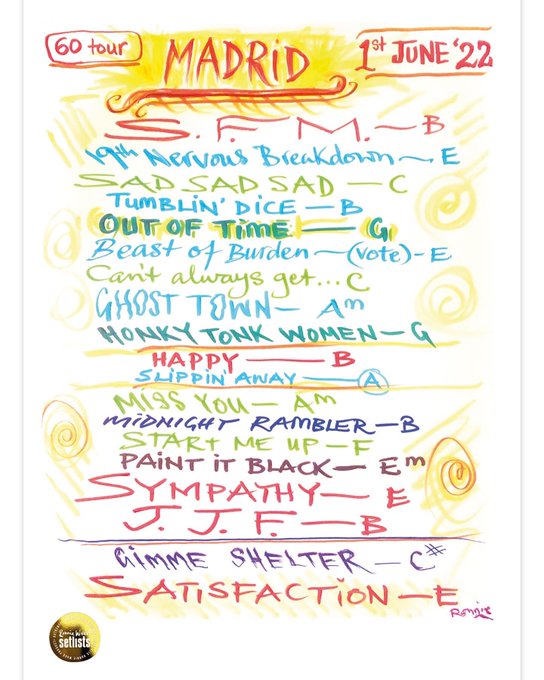 60 tour
MADRID
1st JUNE '22
S. F. M. — B
19th Nervous Breakdown — E
SAD SAD SAD — C
TUMBLIN' DICE — B
OUT OF TIME — G
Beast of Burden — (vote) - E
Can't always get... C
GHOST TOWN — Am
HONKY TONK WOMEN — G
HAPPY — B
SLIPPIN' AWAY — A
MISS YOU — Am
MIDNIGHT RAMBLER — B
START ME UP — F
PAINT IT BLACK — Em
SYMPATHY — E
J. J. F. — B
GIMME SHELTER — C#
SATISFACTION — E
Ronnie
Ronnie Wood
setlists